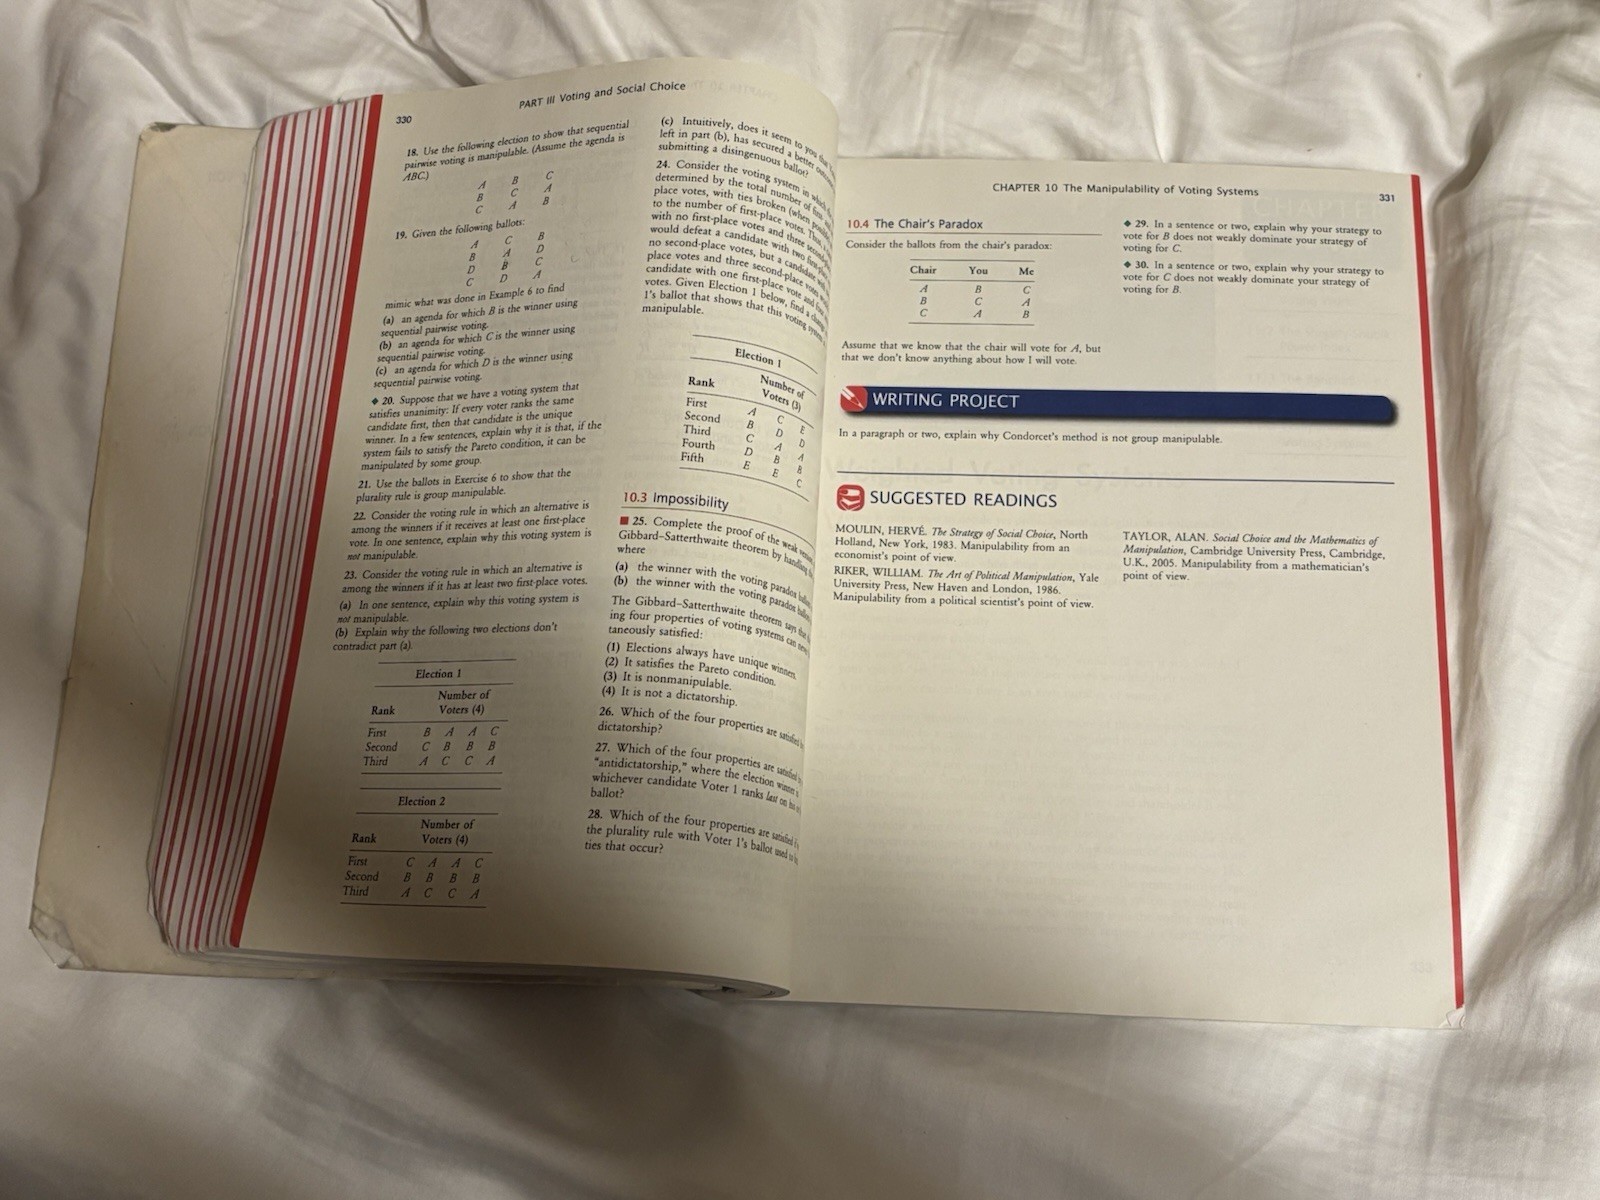 330
PART III Voting and Social Choice
18. Use the following election to show that sequential
pairwise voting is manipulable. (Assume the agenda is
ABC.)
A B C
B C A
C A B
19. Given the following ballots:
A C B
B A D
D B C
C D A
mimic what was done in Example 6 to find
(a) an agenda for which B is the winner using
sequential pairwise voting.
(b) an agenda for which C is the winner using
sequential pairwise voting.
(c) an agenda for which D is the winner using
sequential pairwise voting.
◆ 20. Suppose that we have a voting system that
satisfies unanimity: If every voter ranks the same
candidate first, then that candidate is the unique
winner. In a few sentences, explain why it is that, if the
system fails to satisfy the Pareto condition, it can be
manipulated by some group.
21. Use the ballots in Exercise 6 to show that the
plurality rule is group manipulable.
22. Consider the voting rule in which an alternative is
among the winners if it receives at least one first-place
vote. In one sentence, explain why this voting system is
not manipulable.
23. Consider the voting rule in which an alternative is
among the winners if it has at least two first-place votes.
(a) In one sentence, explain why this voting system is
not manipulable.
(b) Explain why the following two elections don't
contradict part (a).
Election 1
Number of
Rank Voters (4)
First B A A C
Second C B B B
Third A C C A
Election 2
Number of
Rank Voters (4)
First C A A C
Second B B B B
Third A C C A
(c) Intuitively, does it seem to you that
left in part (b), has secured a better
submitting a disingenuous ballot?
24. Consider the voting system in which
determined by the total number of first-
place votes, with ties broken (when
to the number of first-place votes.
with no first-place votes and three
would defeat a candidate with two
no second-place votes, but a candidate
place votes and three second-place votes
candidate with one first-place vote and
votes. Given Election 1 below, find a
1's ballot that shows that this voting
manipulable.
Election 1
Number of
Rank Voters (3)
First A C E
Second B D D
Third C A A
Fourth D B B
Fifth E E C
10.3 Impossibility
■ 25. Complete the proof of the weak
Gibbard–Satterthwaite theorem by handling
where
(a) the winner with the voting paradox
(b) the winner with the voting paradox
The Gibbard–Satterthwaite theorem says
ing four properties of voting systems can
taneously satisfied:
(1) Elections always have unique winners.
(2) It satisfies the Pareto condition.
(3) It is nonmanipulable.
(4) It is not a dictatorship.
26. Which of the four properties are satisfied
dictatorship?
27. Which of the four properties are satisfied
"antidictatorship," where the election winner
whichever candidate Voter 1 ranks last on
ballot?
28. Which of the four properties are satisfied
the plurality rule with Voter 1's ballot used
ties that occur?
CHAPTER 10 The Manipulability of Voting Systems
331
10.4 The Chair's Paradox
Consider the ballots from the chair's paradox:
Chair You Me
A B C
B C A
C A B
Assume that we know that the chair will vote for A, but
that we don't know anything about how I will vote.
◆ 29. In a sentence or two, explain why your strategy to
vote for B does not weakly dominate your strategy of
voting for C.
◆ 30. In a sentence or two, explain why your strategy to
vote for C does not weakly dominate your strategy of
voting for B.
WRITING PROJECT
In a paragraph or two, explain why Condorcet's method is not group manipulable.
SUGGESTED READINGS
MOULIN, HERVÉ. The Strategy of Social Choice, North
Holland, New York, 1983. Manipulability from an
economist's point of view.
RIKER, WILLIAM. The Art of Political Manipulation, Yale
University Press, New Haven and London, 1986.
Manipulability from a political scientist's point of view.
TAYLOR, ALAN. Social Choice and the Mathematics of
Manipulation, Cambridge University Press, Cambridge,
U.K., 2005. Manipulability from a mathematician's
point of view.